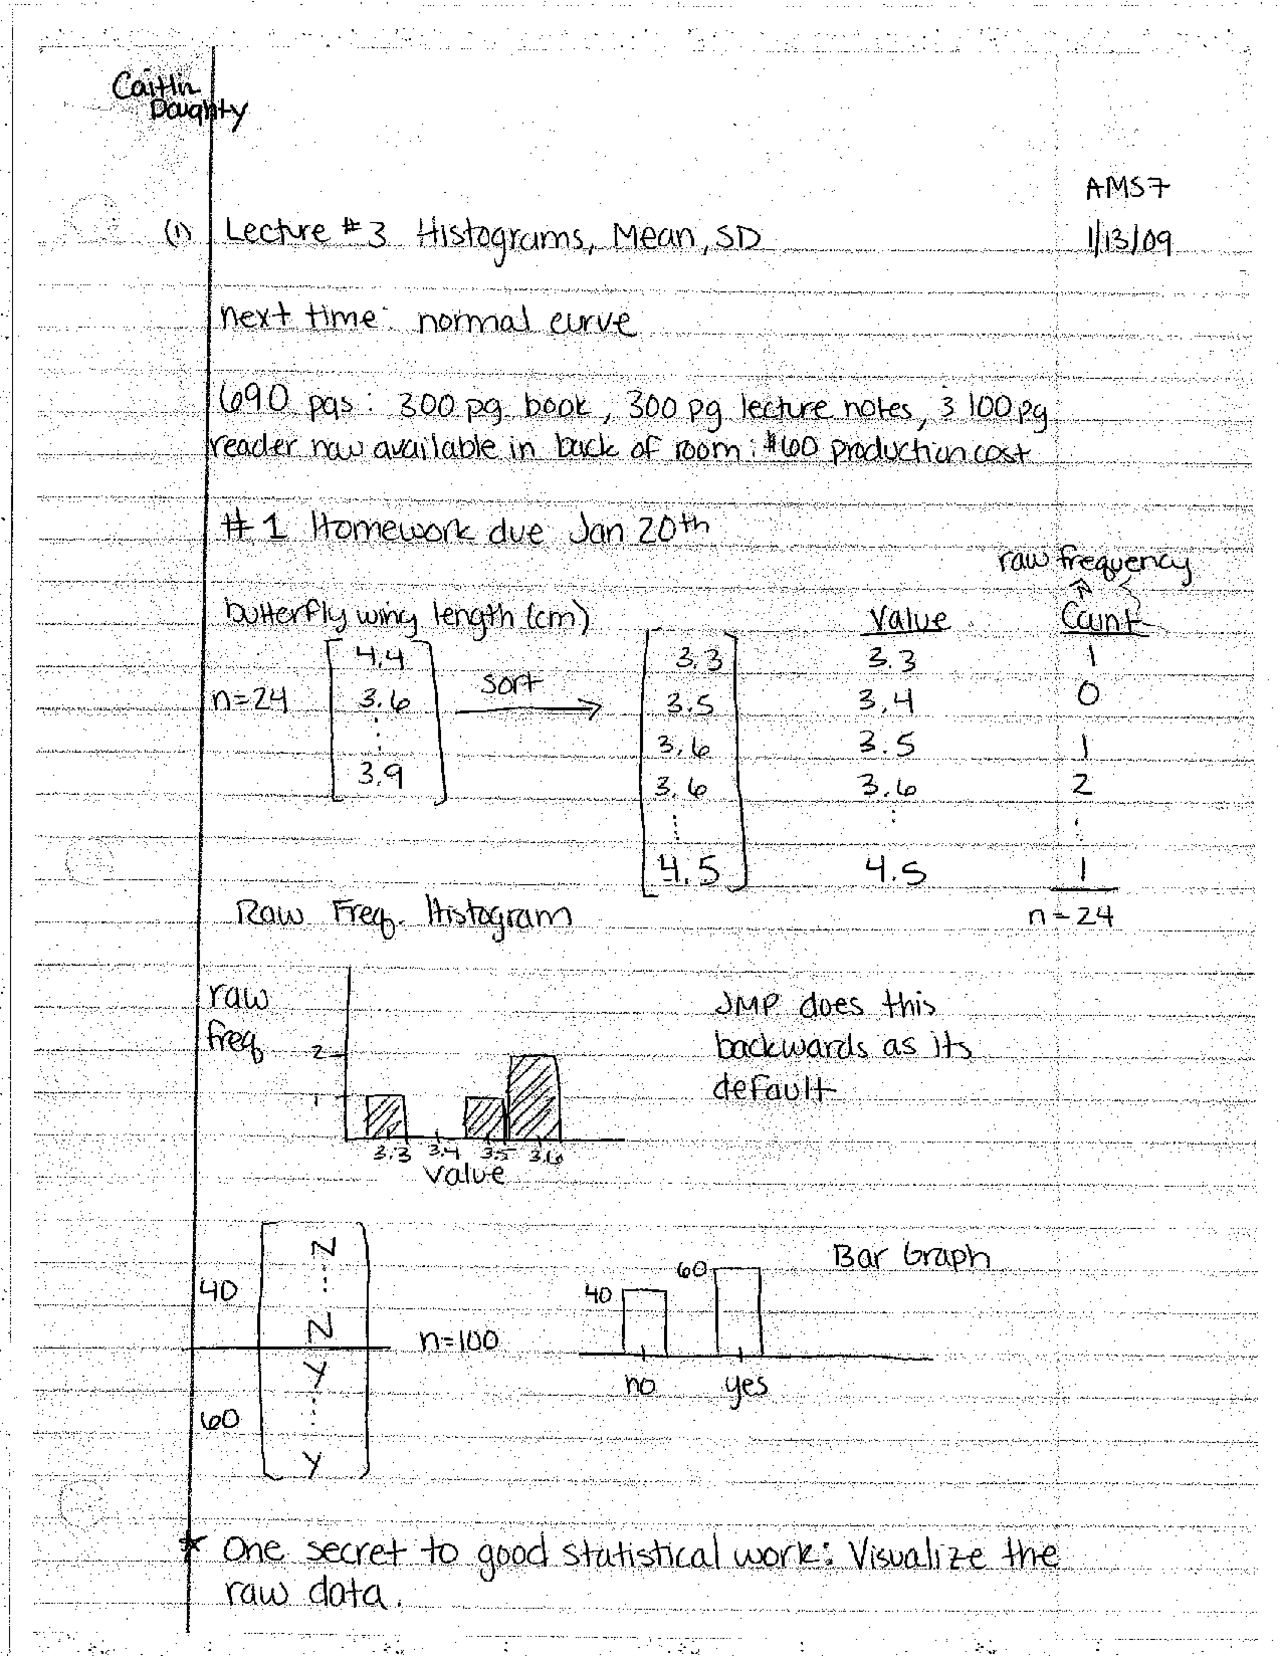 Caitlin
Doughty
AMS7
(1) Lecture #3 Histograms, Mean, SD 1/13/09
next time: normal curve
690 pgs: 300 pg book, 300 pg lecture notes, 3 100 pg
reader now available in back of room: $60 production cost
#1 Homework due Jan 20th
raw frequency
butterfly wing length (cm) Value Count
4.4 3.3 3.3 1
n=24 3.6 sort 3.5 3.4 0
⋮ 3.6 3.5 1
3.9 3.6 3.6 2
⋮ ⋮ ⋮
4.5 4.5 1
Raw Freq. Histogram n=24
raw JMP does this
freq. 2 backwards as its
1 default
3.3 3.4 3.5 3.6
value
N Bar Graph
40 ⋮ 40 60
N n=100
Y no yes
60 ⋮
Y
* One secret to good statistical work: Visualize the
raw data.